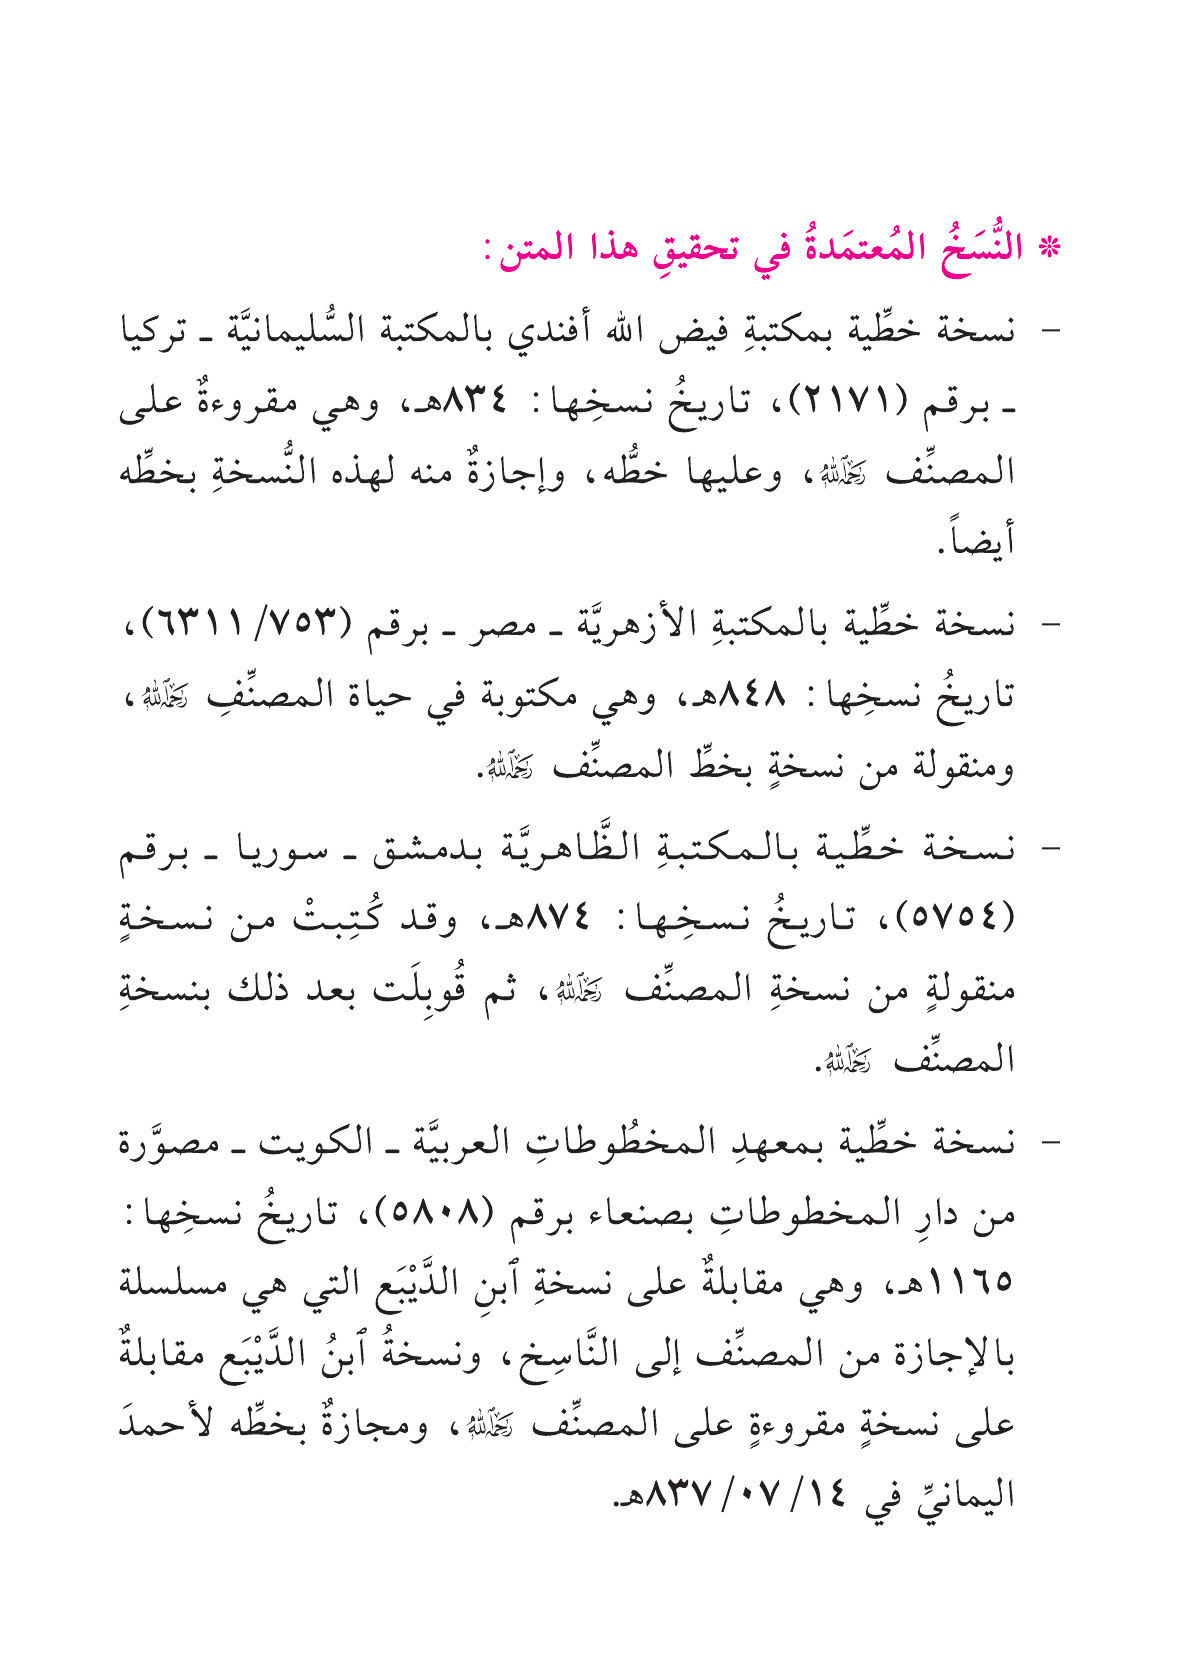 * النُّسَخُ المُعتمَدةُ في تحقيقِ هذا المتن:
- نسخة خطِّية بمكتبةِ فيض الله أفندي بالمكتبة السُّليمانيَّة ـ تركيا
ـ برقم (٢١٧١)، تاريخُ نسخِها: ٨٣٤هـ، وهي مقروءةٌ على
المصنِّف رَحِمَهُ ٱللَّهُ، وعليها خطُّه، وإجازةٌ منه لهذه النُّسخةِ بخطِّه
أيضاً.
- نسخة خطِّية بالمكتبةِ الأزهريَّة ـ مصر ـ برقم (٧٥٣/ ٦٣١١)،
تاريخُ نسخِها: ٨٤٨هـ، وهي مكتوبة في حياة المصنِّفِ رَحِمَهُ ٱللَّهُ،
ومنقولة من نسخةٍ بخطِّ المصنِّف رَحِمَهُ ٱللَّهُ.
- نسخة خطِّية بالمكتبةِ الظَّاهريَّة بدمشق ـ سوريا ـ برقم
(٥٧٥٤)، تاريخُ نسخِها: ٨٧٤هـ، وقد كُتِبتْ من نسخةٍ
منقولةٍ من نسخةِ المصنِّف رَحِمَهُ ٱللَّهُ، ثم قُوبِلَت بعد ذلك بنسخةِ
المصنِّف رَحِمَهُ ٱللَّهُ.
- نسخة خطِّية بمعهدِ المخطُوطاتِ العربيَّة ـ الكويت ـ مصوَّرة
من دارِ المخطوطاتِ بصنعاء برقم (٥٨٠٨)، تاريخُ نسخِها:
١١٦٥هـ، وهي مقابلةٌ على نسخةِ ٱبنِ الدَّيْبَع التي هي مسلسلة
بالإجازة من المصنِّف إلى النَّاسِخ، ونسخةُ ٱبنُ الدَّيْبَع مقابلةٌ
على نسخةٍ مقروءةٍ على المصنِّف رَحِمَهُ ٱللَّهُ، ومجازةٌ بخطِّه لأحمدَ
اليمانيِّ في ١٤/ ٠٧/ ٨٣٧هـ.